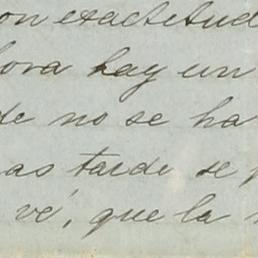 on exactitud
hora hay un
de no se ha
as tarde se
ve, que la